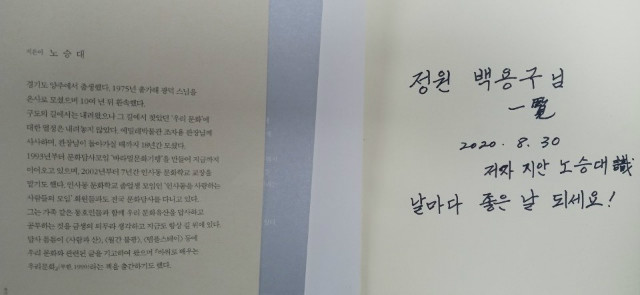 지은이 노승대
경기도 양주에서 출생했다. 1975년 출가해 광덕 스님을
은사로 모셨으며 10여 년 뒤 환속했다.
구도의 길에서는 내려왔으나 그 길에서 찾았던 '우리 문화'에
대한 열정은 내려놓지 않았다. 에밀레박물관 조자용 관장님께
사사하며, 관장님이 돌아가실 때까지 18년간 모셨다.
1993년부터 문화답사모임 '바라밀문화기행'을 만들어 지금까지
이어오고 있으며, 2002년부터 7년간 인사동 문화학교 교장을
맡기도 했다. 인사동 문화학교 졸업생 모임인 '인사동을 사랑하는
사람들의 모임' 회원들과도 전국 문화답사를 다니고 있다.
그는 가족 같은 동호인들과 함께 우리 문화유산을 답사하고
공부하는 것을 금생의 의무라 생각하고 지금도 항상 길 위에 있다.
답사 틈틈이 《사람과 산》, 《월간 불광》, 《템플스테이》 등에
우리 문화와 관련된 글을 기고하여 왔으며 『바위로 배우는
우리문화』(무한, 1999)라는 책을 출간하기도 했다.
정원 백용구님
一覽
2020. 8. 30
저자 지안 노승대 識
날마다 좋은 날 되세요!